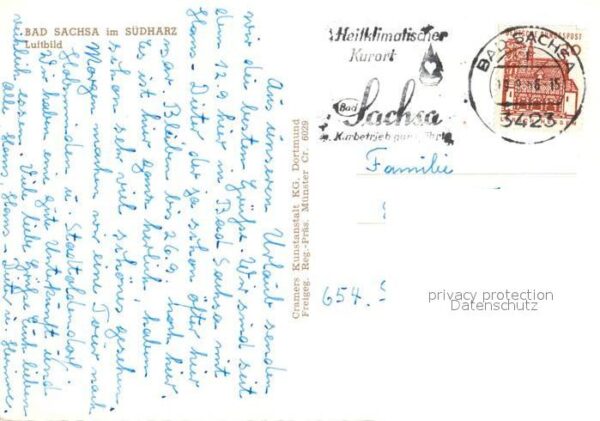 BAD SACHSA im SÜDHARZ
Luftbild
Aus unserem Urlaub senden
wir die besten Grüße. Wir sind seit
dem 12.9 hier in Bad Sachsa mit
Hans-Dieter der ja schon öfter hier
war. Bleiben bis 26.9 noch hier.
Es ist hier ganz herrlich haben
schon sehr viel schönes gesehen.
Morgen machen wir eine Tour nach
Holzminden u. Stadtoldendorf
Wir haben eine gute Unterkunft und
reichlich essen. Viele liebe Grüße Euch lieben
alle Hans, Hans-Dieter u.
Cramers Kunstanstalt KG, Dortmund
Freigeg. Reg.-Präs. Münster Cr. 6029
Heilklimatischer
Kurort
Bad
Sachsa
Kurbetrieb
BAD SACHSA
3423
DEUTSCHE BUNDESPOST
Familie
654.
privacy protection
Datenschutz